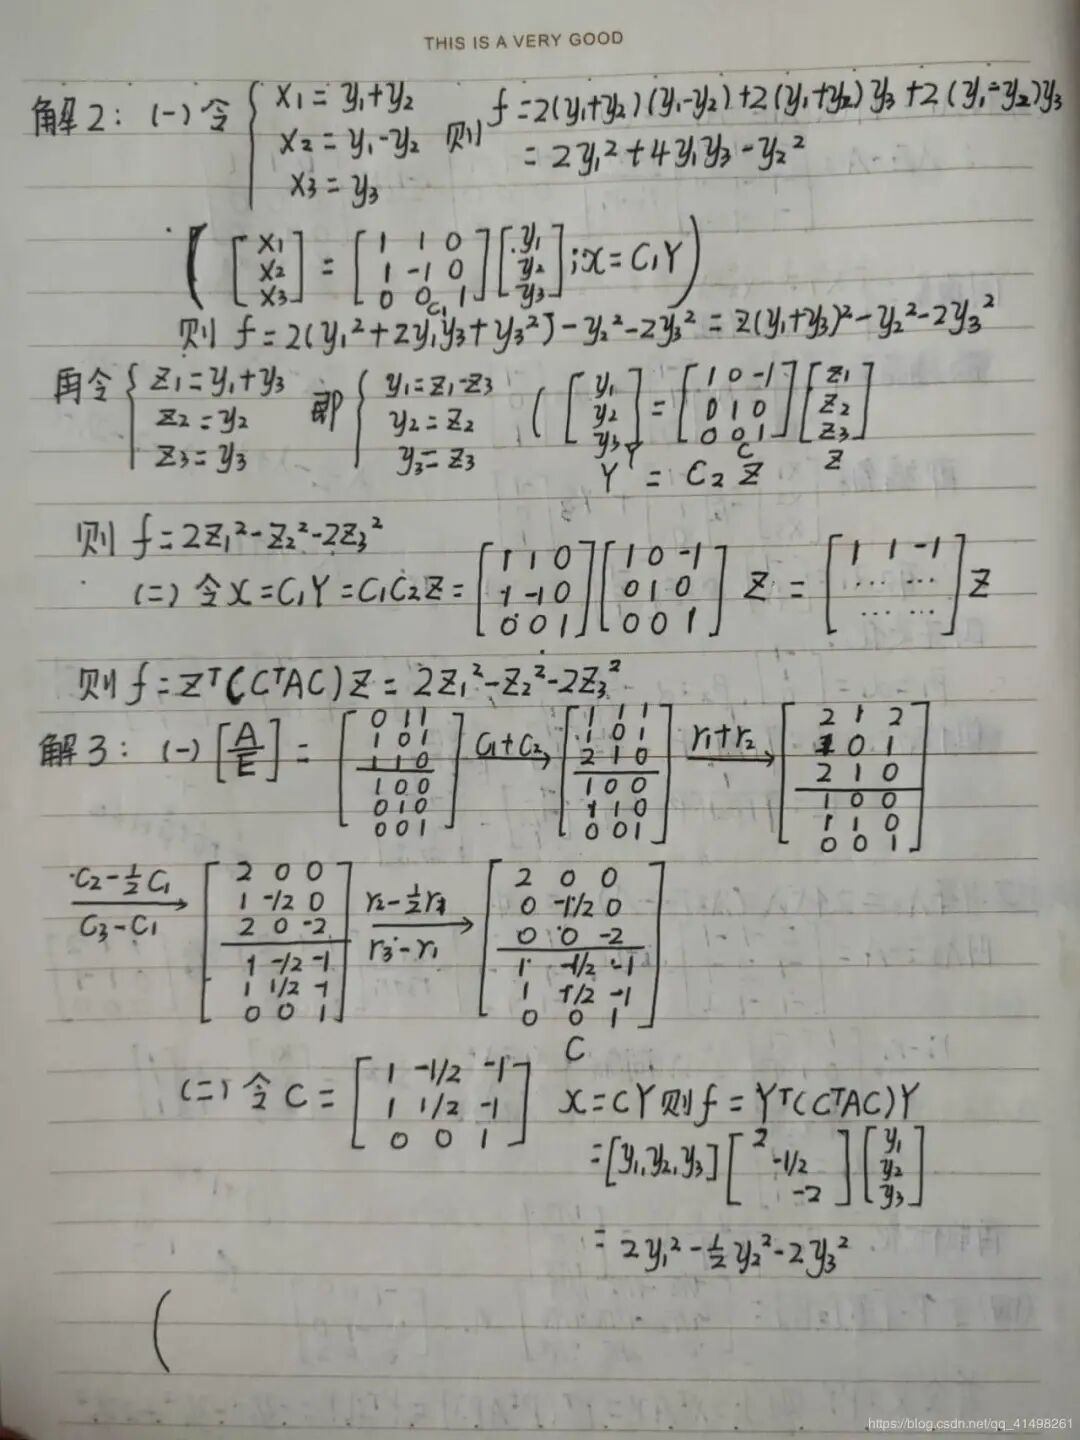 THIS IS A VERY GOOD
解2: (一) 令 { x1 = y1+y2 则 f = 2(y1+y2)(y1-y2)+2(y1+y2)y3+2(y1-y2)y3
x2 = y1-y2 = 2y1²+4y1y3-y2²
x3 = y3
( [x1 x2 x3] = [1 1 0; 1 -1 0; 0 0 1] [y1 y2 y3] ; x = C1Y )
C1
则 f = 2(y1²+2y1y3+y3²)-y2²-2y3² = 2(y1+y3)²-y2²-2y3²
再令 { z1 = y1+y3 即 { y1 = z1-z3 ( [y1 y2 y3] = [1 0 -1; 0 1 0; 0 0 1] [z1 z2 z3]
z2 = y2 y2 = z2
z3 = y3 y3 = z3
Y C Z
Y = C2 Z
则 f = 2z1²-z2²-2z3²
(二) 令 X = C1Y = C1C2Z = [1 1 0; 1 -1 0; 0 0 1] [1 0 -1; 0 1 0; 0 0 1] Z = [1 1 -1; ... ...; ... ...] Z
则 f = Zᵀ(CᵀAC)Z = 2z1²-z2²-2z3²
解3: (一) [A/E] = [0 1 1; 1 0 1; 1 1 0; 1 0 0; 0 1 0; 0 0 1] C1+C2→ [1 1 1; 1 0 1; 2 1 0; 1 0 0; 1 1 0; 0 0 1] r1+r2→ [2 1 2; 1 0 1; 2 1 0; 1 0 0; 1 1 0; 0 0 1]
C2-½C1 C3-C1→ [2 0 0; 1 -1/2 0; 2 0 -2; 1 -1/2 -1; 1 1/2 -1; 0 0 1] r2-½r1 r3-r1→ [2 0 0; 0 -1/2 0; 0 0 -2; 1 -1/2 -1; 1 1/2 -1; 0 0 1]
C
(二) 令 C = [1 -1/2 -1; 1 1/2 -1; 0 0 1] X = CY 则 f = Yᵀ(CᵀAC)Y
= [y1, y2, y3] [2 -1/2 -2] [y1 y2 y3]
= 2y1²-½y2²-2y3²
(
https://blog.csdn.net/qq_41498261